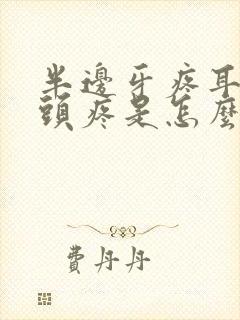 半邊牙疼耳
頭疼是怎麼
費丹丹